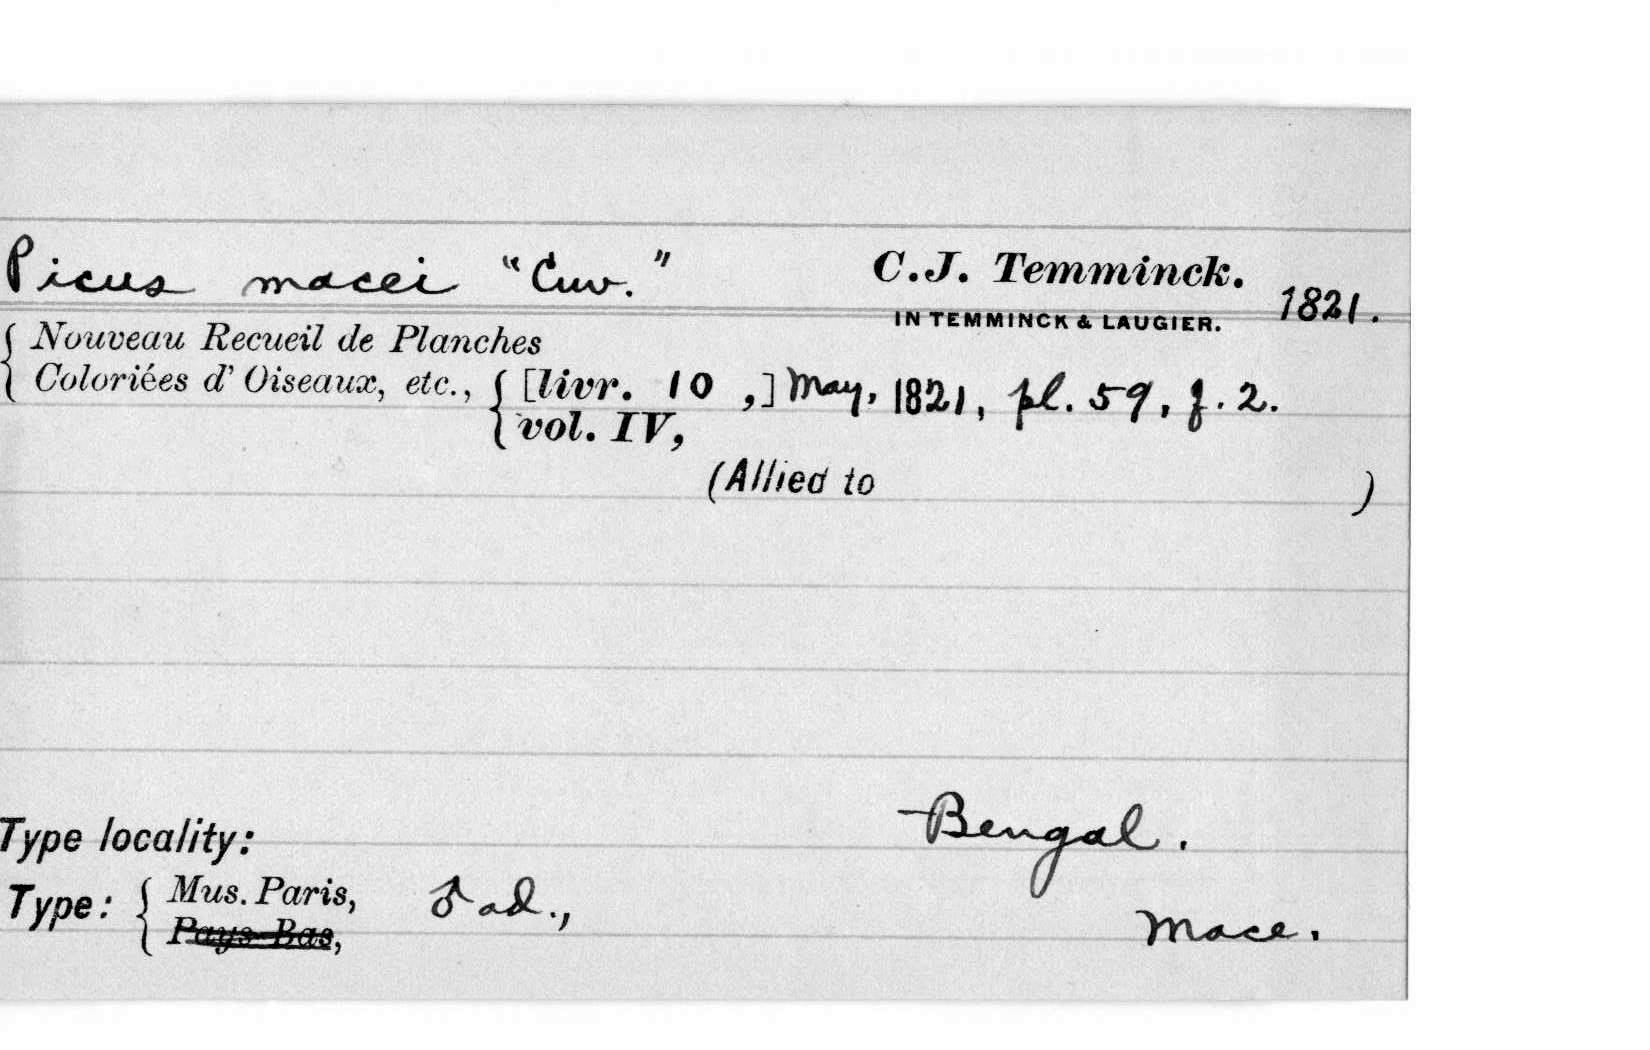 Picus macei "Cuv." C.J. Temminck. 1821.
IN TEMMINCK & LAUGIER.
Nouveau Recueil de Planches
Coloriées d'Oiseaux, etc., [livr. 10 ,] May, 1821, pl. 59, f. 2.
vol. IV,
(Allied to )
Type locality: Bengal.
Type: Mus. Paris, ♂ ad., Mace.
Pays-Bas,